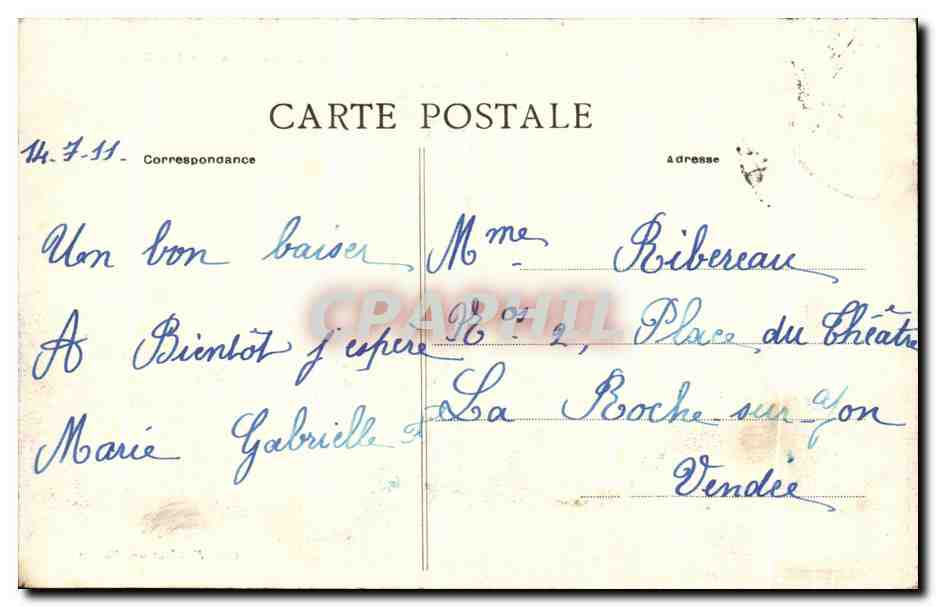 CARTE POSTALE
14-7-11- Correspondance
Adresse
Un bon baiser
A Bientôt j'espère
Marie Gabrielle
Mme Ribereau
Nos 2, Place du Théâtre
La Roche sur Yon
Vendée
CPAPHIL